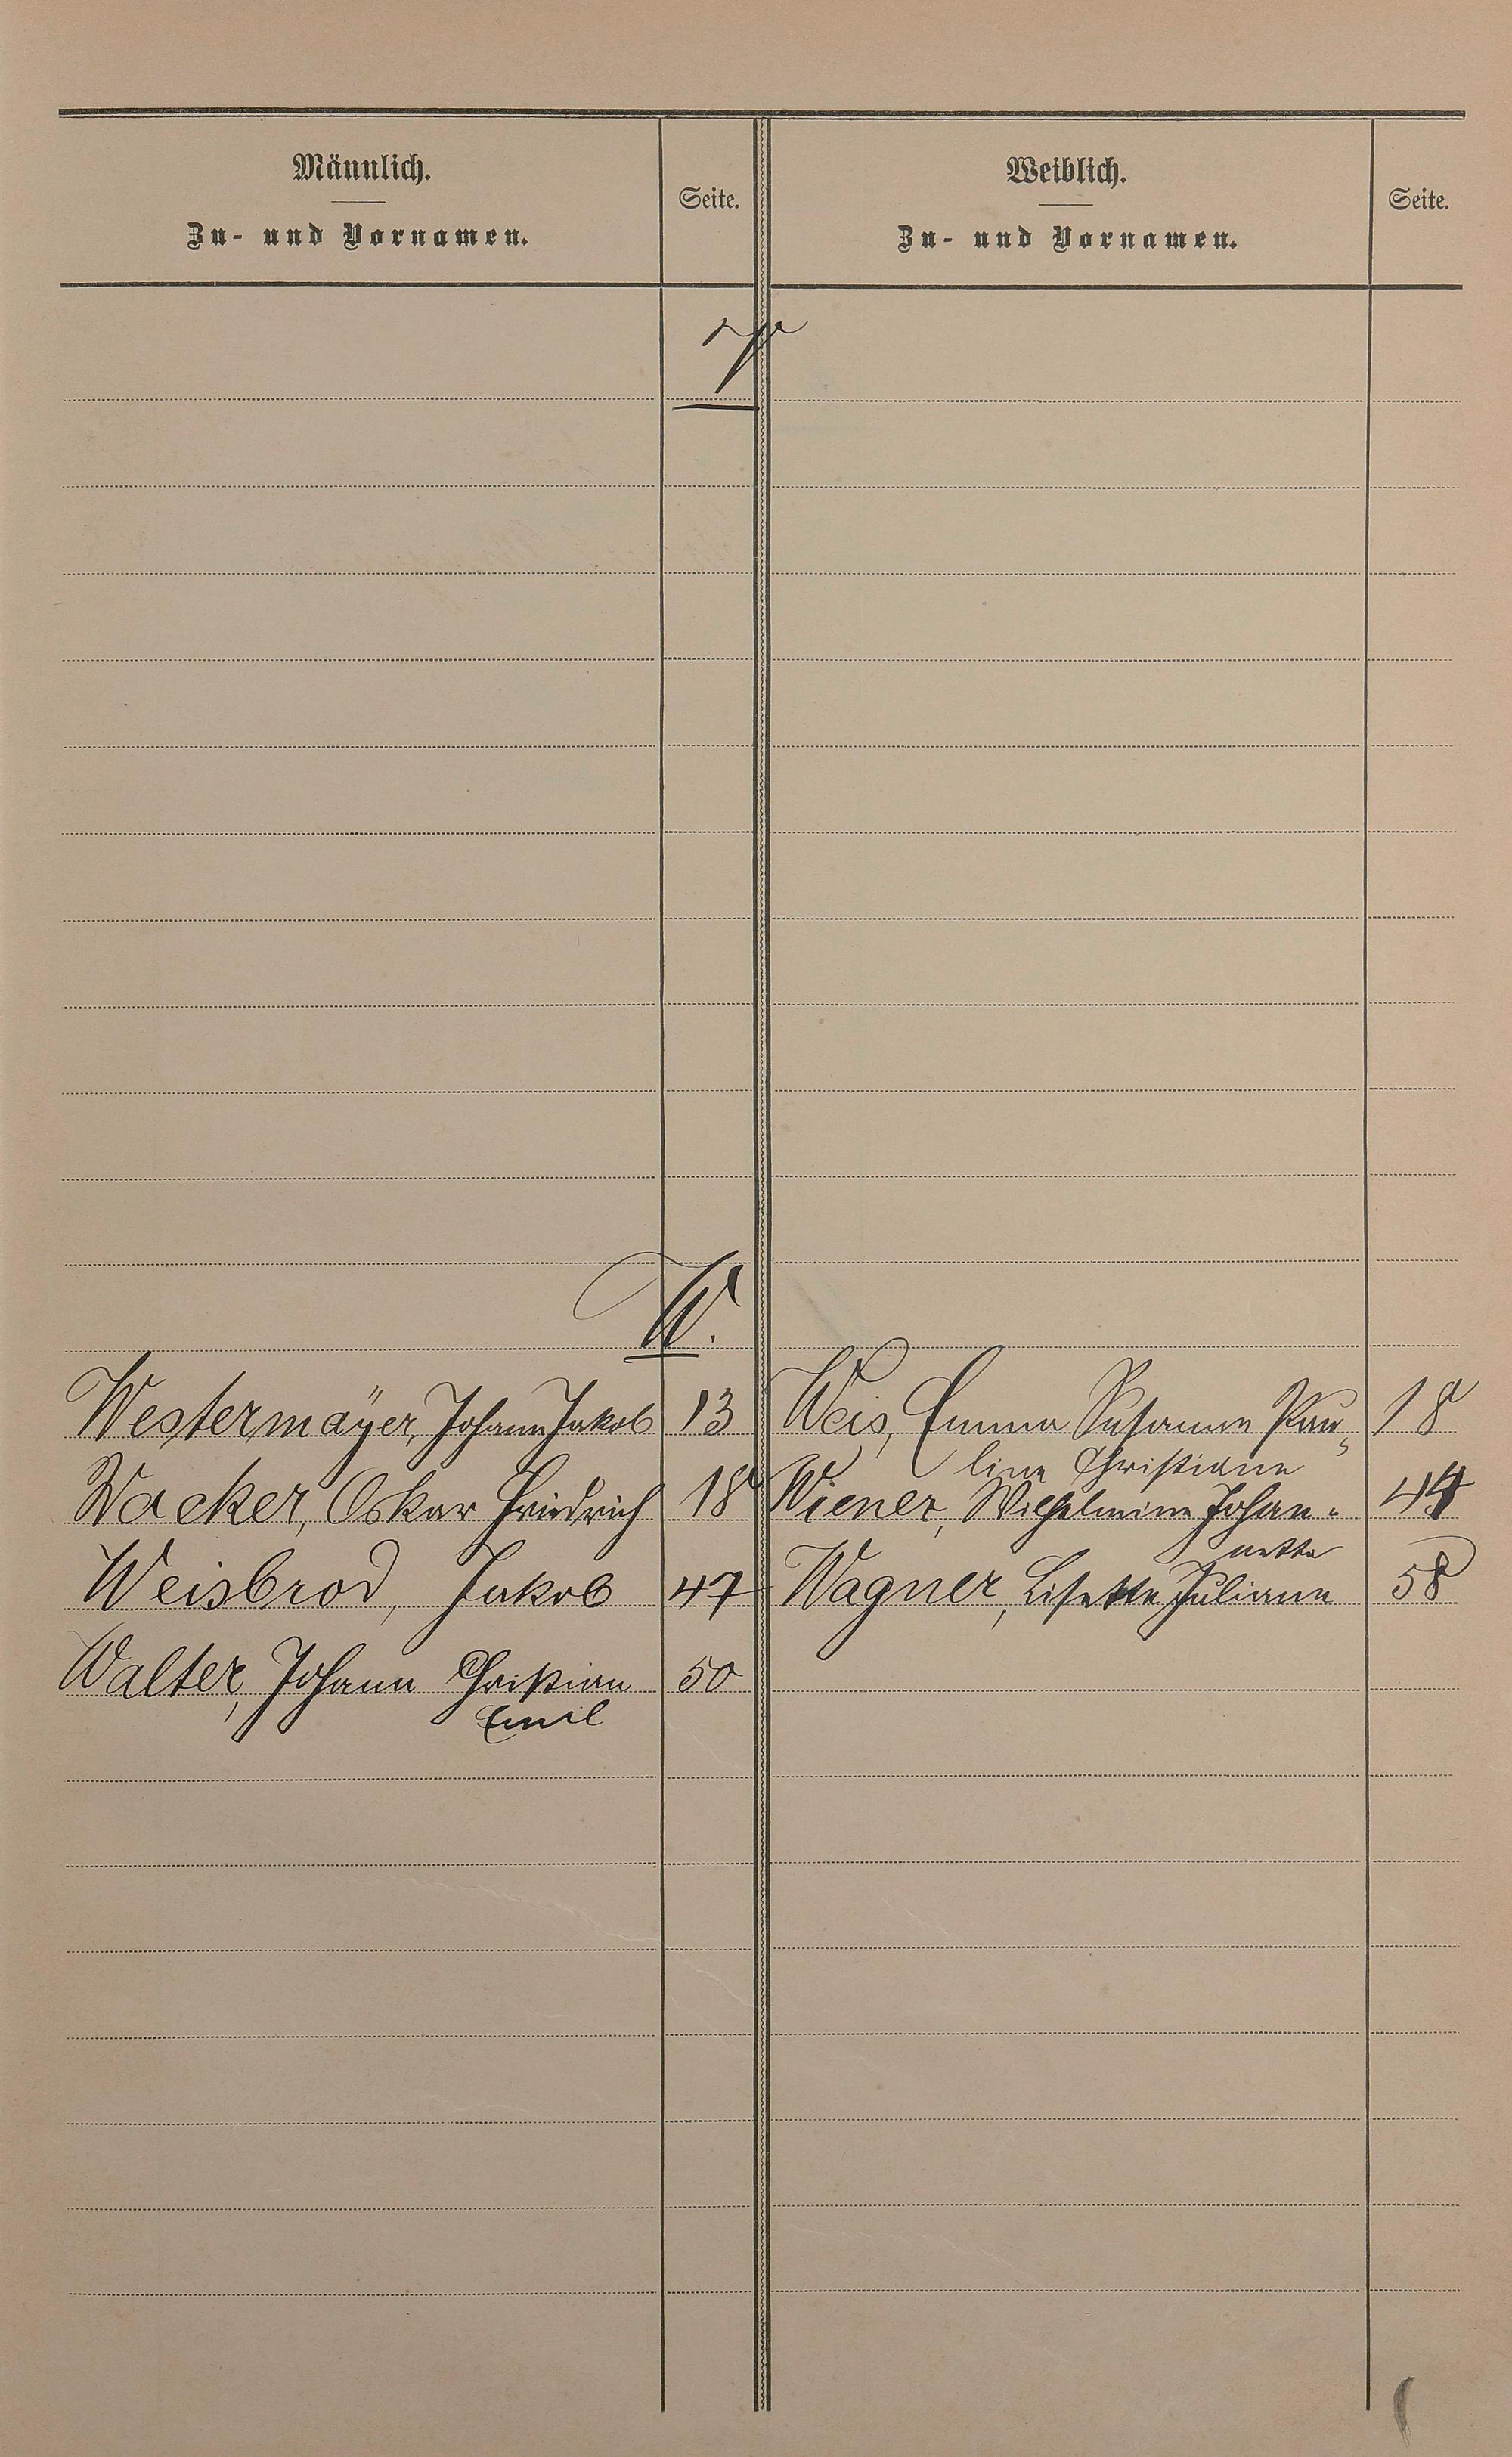 Männlich.
Zu- und Vornamen.
Seite.
Weiblich.
Zu- und Vornamen.
Seite.
V
W.
Westermäyer, Johann Jakob 13
Weis, Emma Susanna Pau„ 18
line Christiane
Wacker, Oskar Friedrich 18
Wiener, Wilhelmine Johan- 44
netta
Weisbrod, Jakob 47
Wagner, Lisette Juliane 58
Walter, Johann Christian 50
Emil